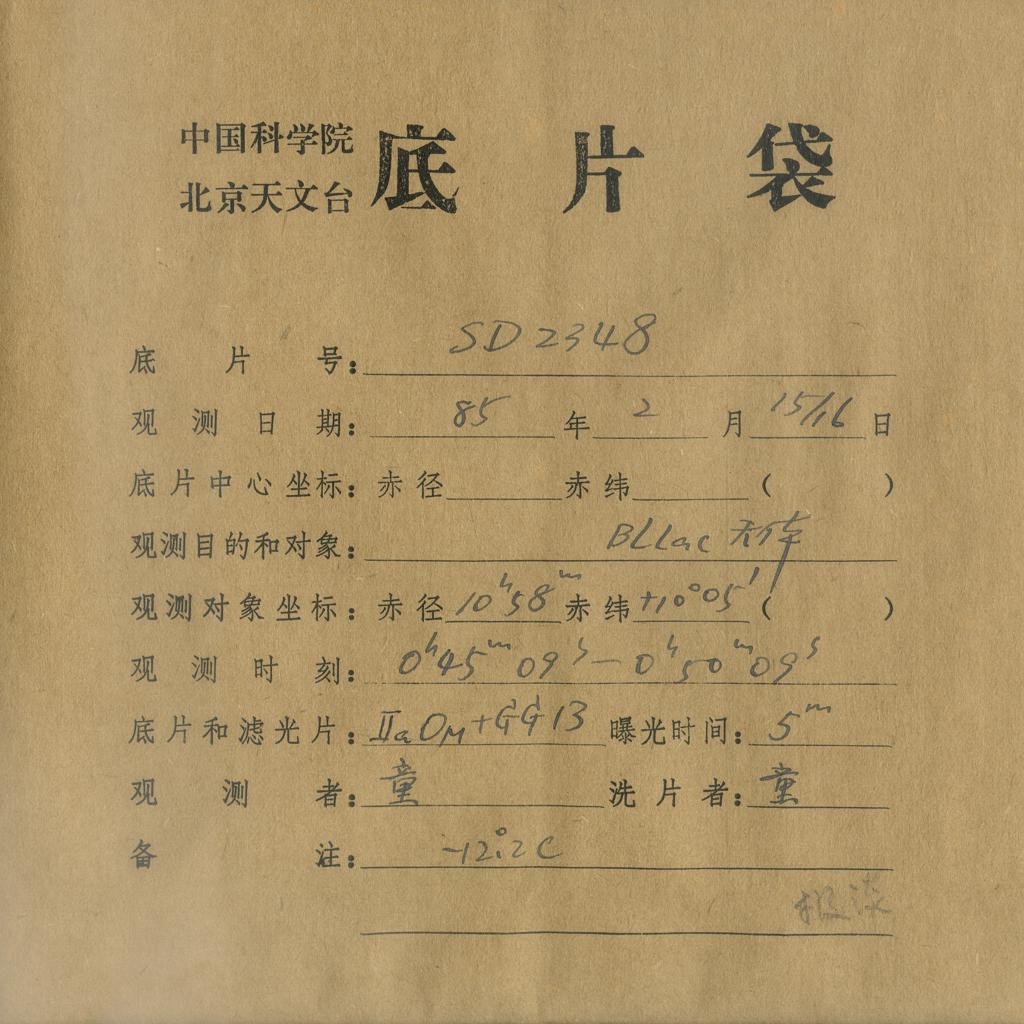 中国科学院
北京天文台
底片袋
底片号：SD2348
观测日期：85年2月15/16日
底片中心坐标：赤径 赤纬 （ ）
观测目的和对象：BLLac 天体
观测对象坐标：赤径10ʰ58ᵐ赤纬+10°05′（ ）
观测时刻：0ʰ45ᵐ09ˢ—0ʰ50ᵐ09ˢ
底片和滤光片：IIaOM+GG13 曝光时间：5ᵐ
观测者：童 洗片者：童
备注：-12°.2C
极淡